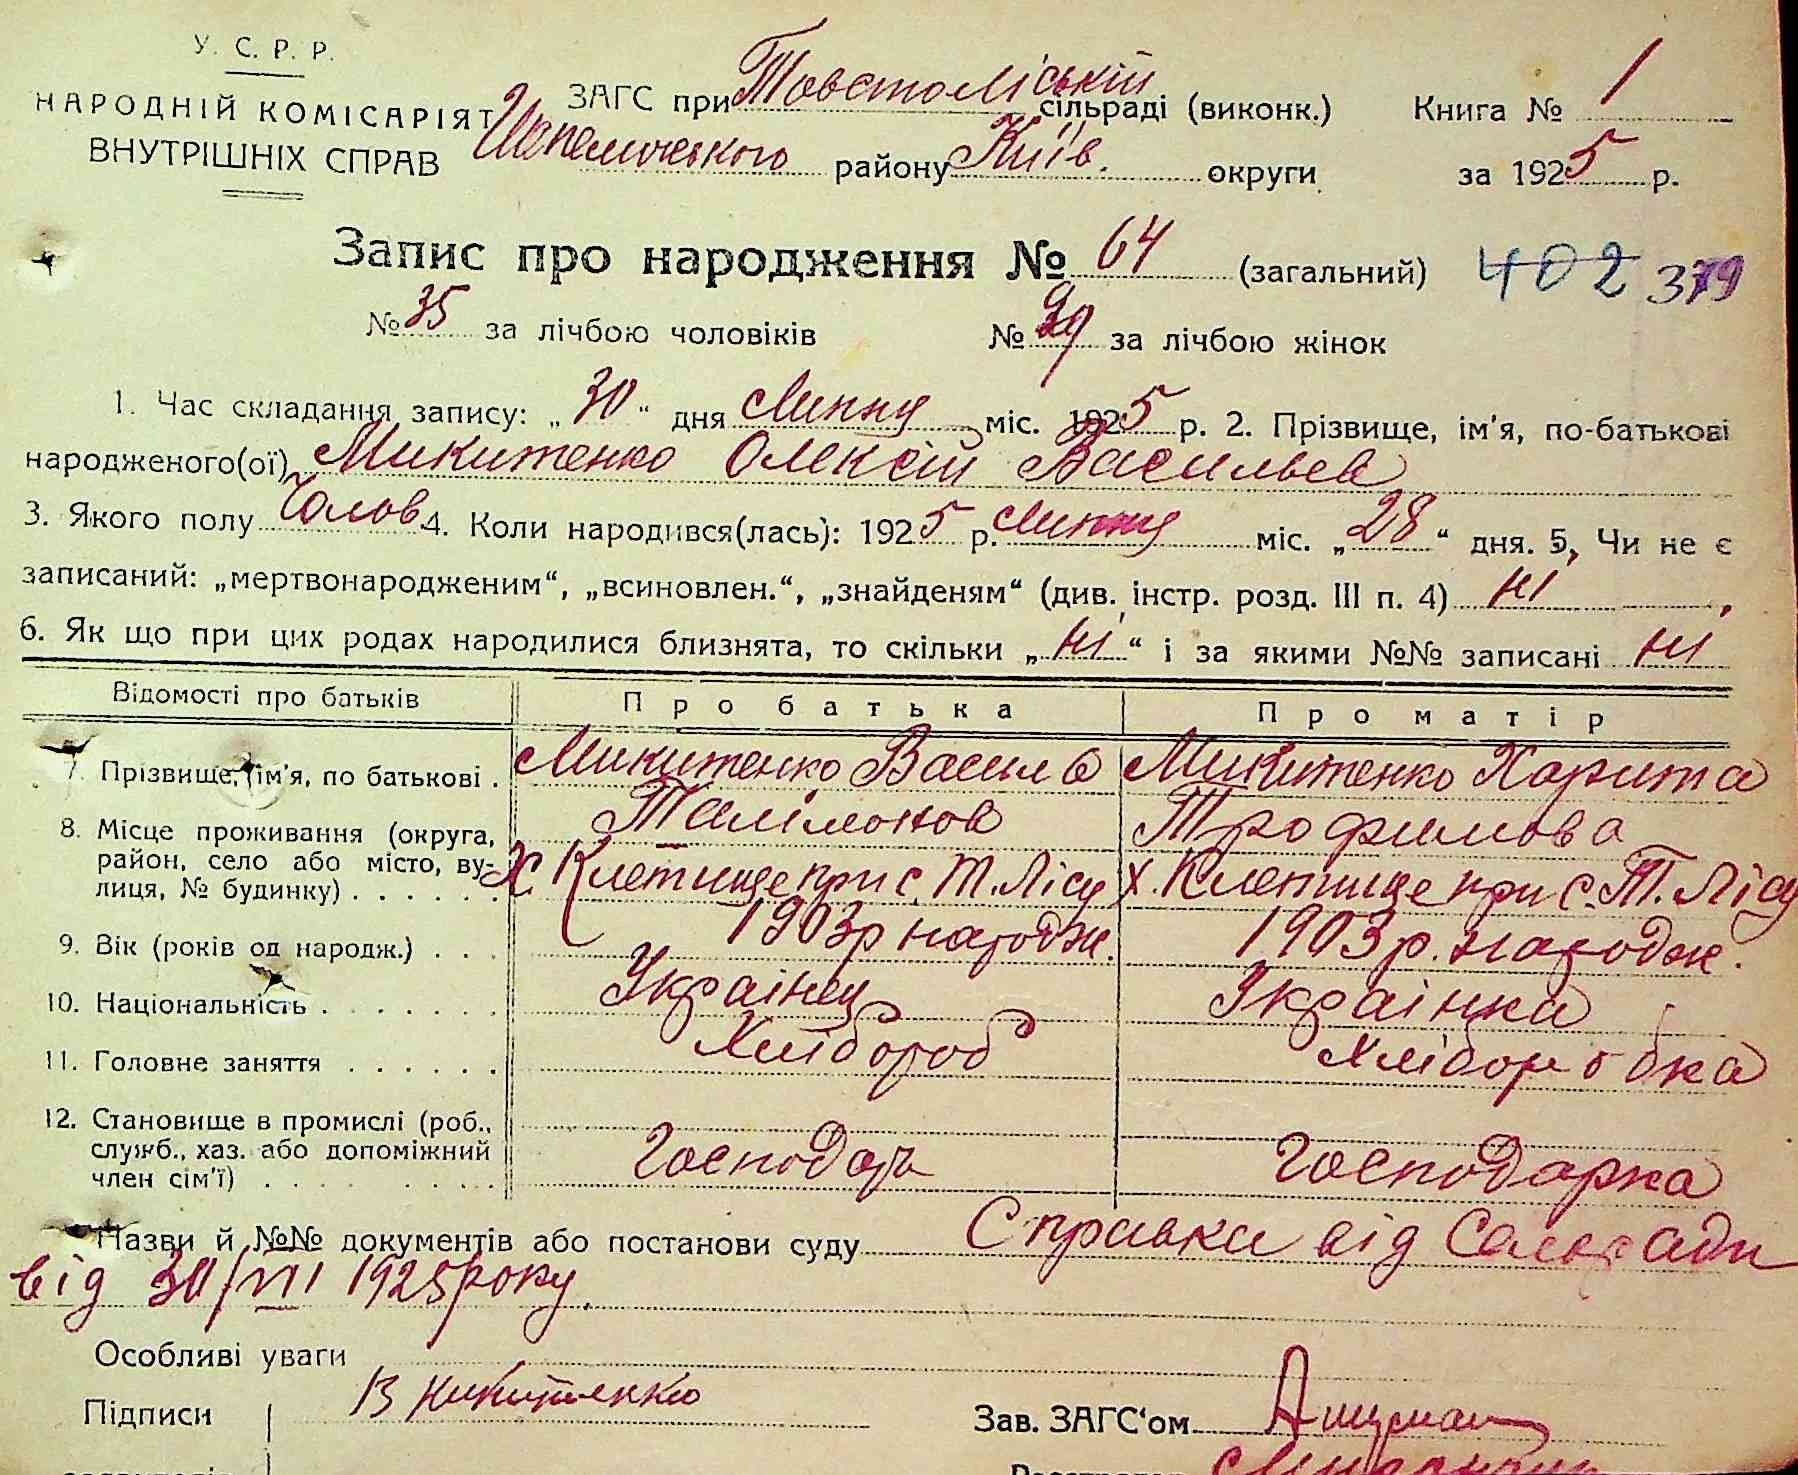 У. С. Р. Р.
НАРОДНІЙ КОМІСАРІЯТ
ВНУТРІШНІХ СПРАВ
ЗАГС при Товстоліській сільраді (виконк.) Книга № 1
району Київ. округи за 1925 р.
Запис про народження № 64 (загальний) 402 379
№ 35 за лічбою чоловіків № 29 за лічбою жінок
1. Час складання запису: „30“ дня Липня міс. 1925 р. 2. Прізвище, ім'я, по-батькові
народженого(ої) Микитенко Олексій Васильев
3. Якого полу Чолов 4. Коли народився(лась): 1925 р. Липня міс. „28“ дня. 5, Чи не є
записаний: „мертвонародженим“, „всиновлен.“, „знайденям“ (див. інстр. розд. III п. 4) ні
6. Як що при цих родах народилися близнята, то скільки „ні“ і за якими №№ записані ні
Відомості про батьків Про батька Про матір
7. Прізвище, ім'я, по батькові . Микитенко Василь Микитенко Харита
Талімонов Трофимова
8. Місце проживання (округа,
район, село або місто, ву-
лиця, № будинку) . . . . . . Х Клетище при с. Т. Лісу х. Клетище при с. Т. Лісу
9. Вік (років од народж.) . . . 1903 р народж. 1903 р. народж.
10. Національність . . . . . . . Українец Українка
11. Головне заняття . . . . . . Хлібороб Хліборобка
12. Становище в промислі (роб.,
служб., хаз. або допоміжний
член сім'ї) . . . . . . . . . Господарь Господарка
Назви й №№ документів або постанови суду Справка від Сельради
від 30/VII 1925 року.
Особливі уваги
Підписи В Микитенко Зав. ЗАГС'ом